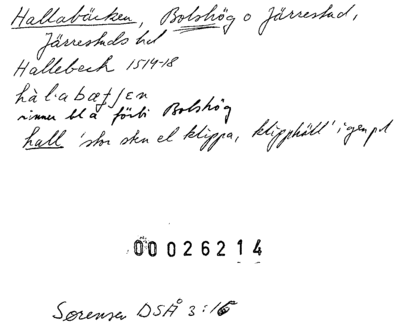 Hallabäcken, Bolshög o Järrestad,
Järrestads hd
Hallebeck 1514-18
hàl·abæƭʃɛn
rinner bl a förbi Bolshög
hall 'stor sten el klippa, klipphäll' i gen pl
00026214
Sørensen DSÅ 3:16